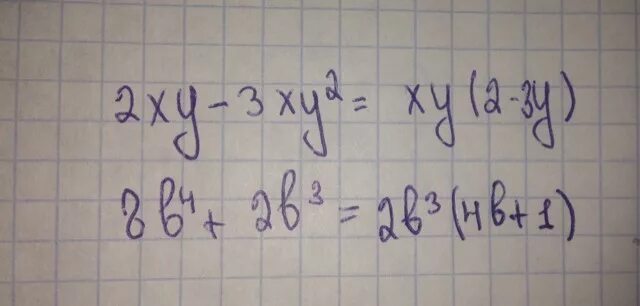 2xy - 3xy² = xy(2-3y)
8b⁴ + 2b³ = 2b³(4b+1)